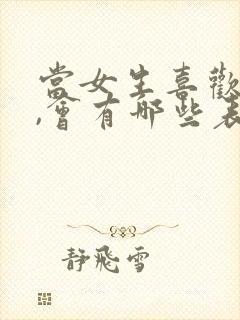 當女生喜歡
,會有哪些表
靜飛雪